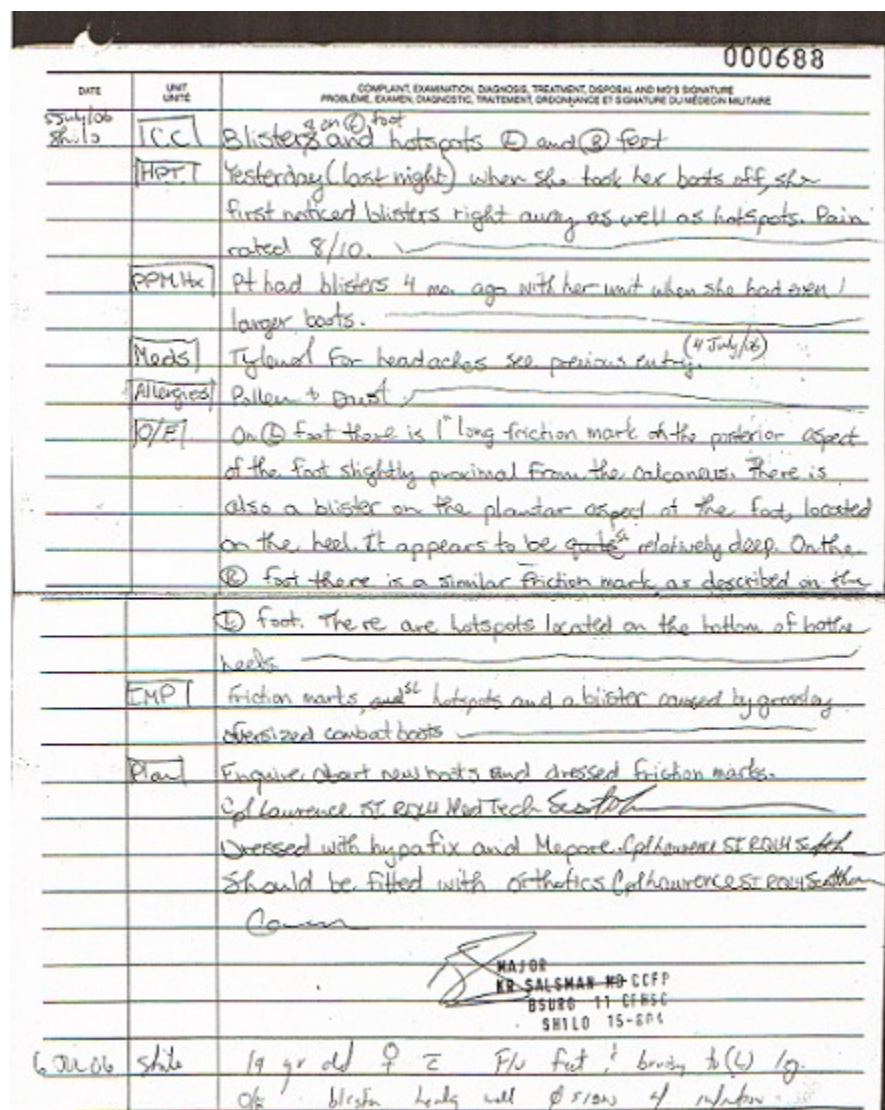 000688
DATE UNIT UNITÉ COMPLAINT, EXAMINATION, DIAGNOSIS, TREATMENT, DISPOSAL AND MO'S SIGNATURE
PROBLÈME, EXAMEN, DIAGNOSTIC, TRAITEMENT, ORDONNANCE ET SIGNATURE DU MÉDECIN MILITAIRE
5 July/06 on Ⓛ foot
Shilo CC Blisters and hotspots Ⓛ and Ⓡ foot
HPI Yesterday (last night) when she took her boots off, she
first noticed blisters right away as well as hotspots. Pain
rated 8/10.
PPMHx Pt had blisters 4 mo. ago with her unit when she had even
larger boots.
Meds Tylenol for headaches see previous entry. (4 July/06)
Allergies Pollen + Dust
O/E On Ⓛ foot there is 1" long friction mark on the posterior aspect
of the foot slightly proximal from the calcaneus. There is
also a blister on the plantar aspect of the foot, located
on the heel. It appears to be quite SL relatively deep. On the
Ⓡ foot there is a similar friction mark as described on the
Ⓛ foot. There are hotspots located on the bottom of bothe
heels
IMP Friction marks, and SL hotspots and a blister caused by grossley
oversized combat boots
Plan Enquire about new boots and dressed friction marks.
Cpl Lawrence ST RQL4 Med Tech
Dressed with hypafix and Mepore. Cpl Lawrence ST RQL4
Should be fitted with orthotics Cpl Lawrence ST RQL4
MAJOR
KR SALSMAN MD CCFP
BSURG 11 CFHSC
SHILO
6 JUL 06 Shilo 19 yr old ♀ c̄ F/U feet to (L) leg.
O/E blister well Ø signs of